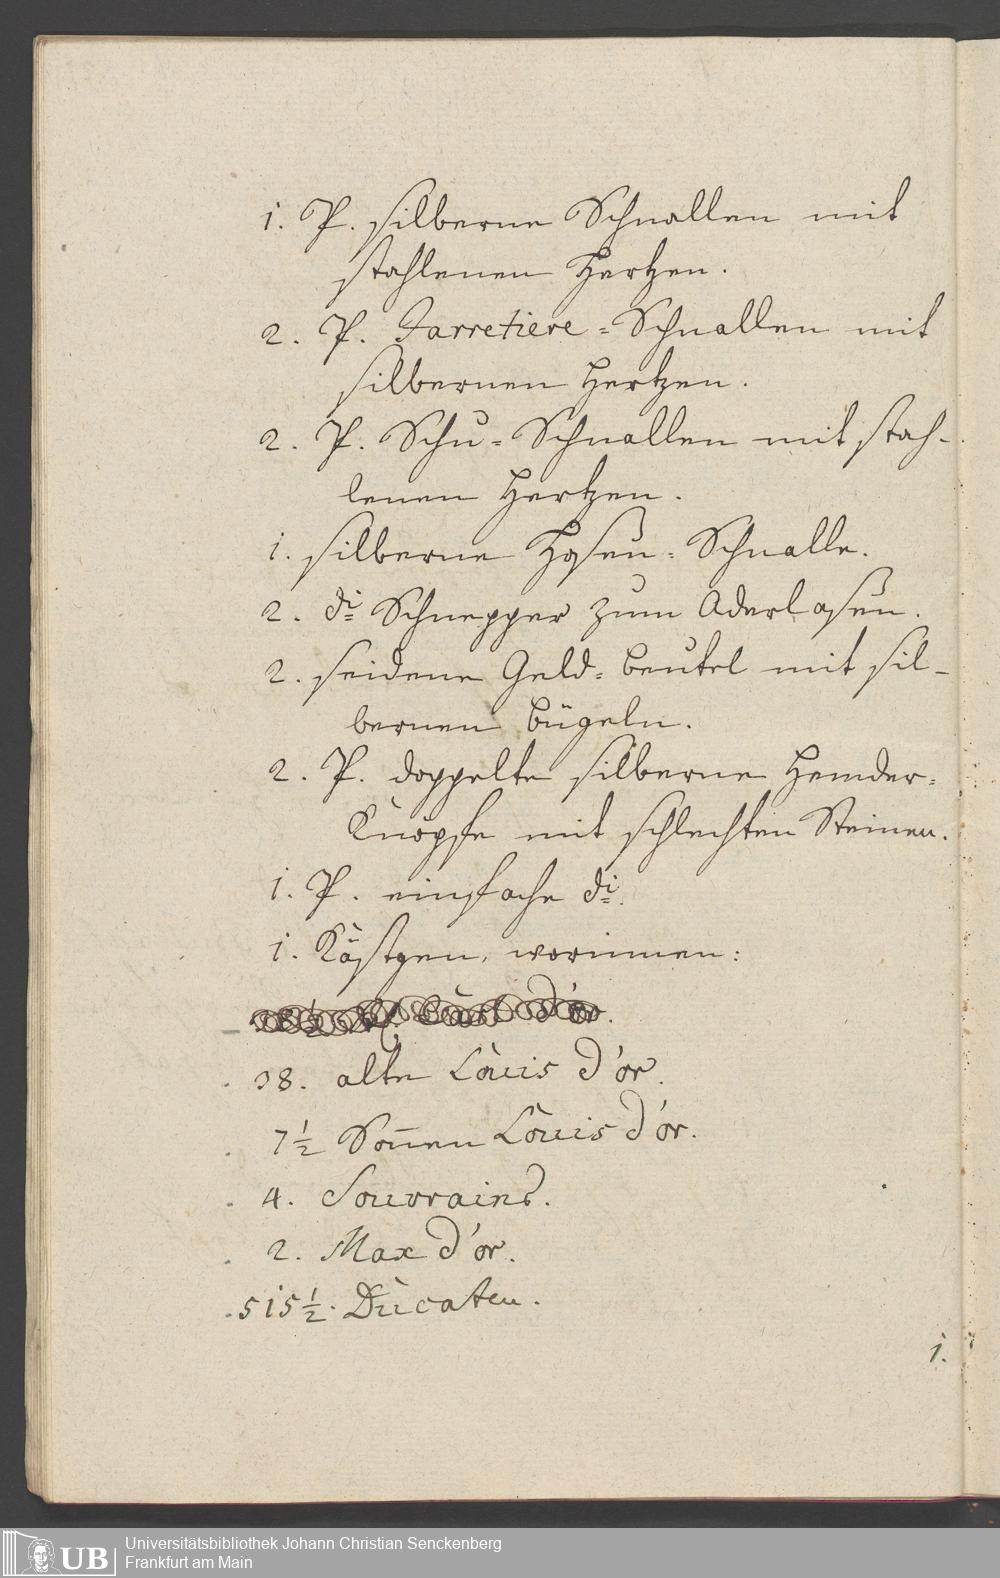 1. P. silberne Schnallen mit
stahlenen Hertzen.
2. P. Jarretiere-Schnallen mit
silbernen Hertzen.
2. P. Schu-Schnallen mit stah-
lenen Hertzen.
1. silberne Hosen-Schnalle.
2. do Schnepper zum Aderlasen.
2. seidene Geld-beutel mit sil-
bernen bügeln.
2. P. doppelte silberne Hemder-
Knöpfe mit schlechten Steinen.
1. P. einfache do.
1. Kästgen, worinnen:
d'or.
38. alte Louis d'or.
7 1/2 Soñen Louis d'or.
4. Souvrains.
2. Max d'or.
515 1/2. Ducaten.
1.
UB
Universitätsbibliothek Johann Christian Senckenberg
Frankfurt am Main